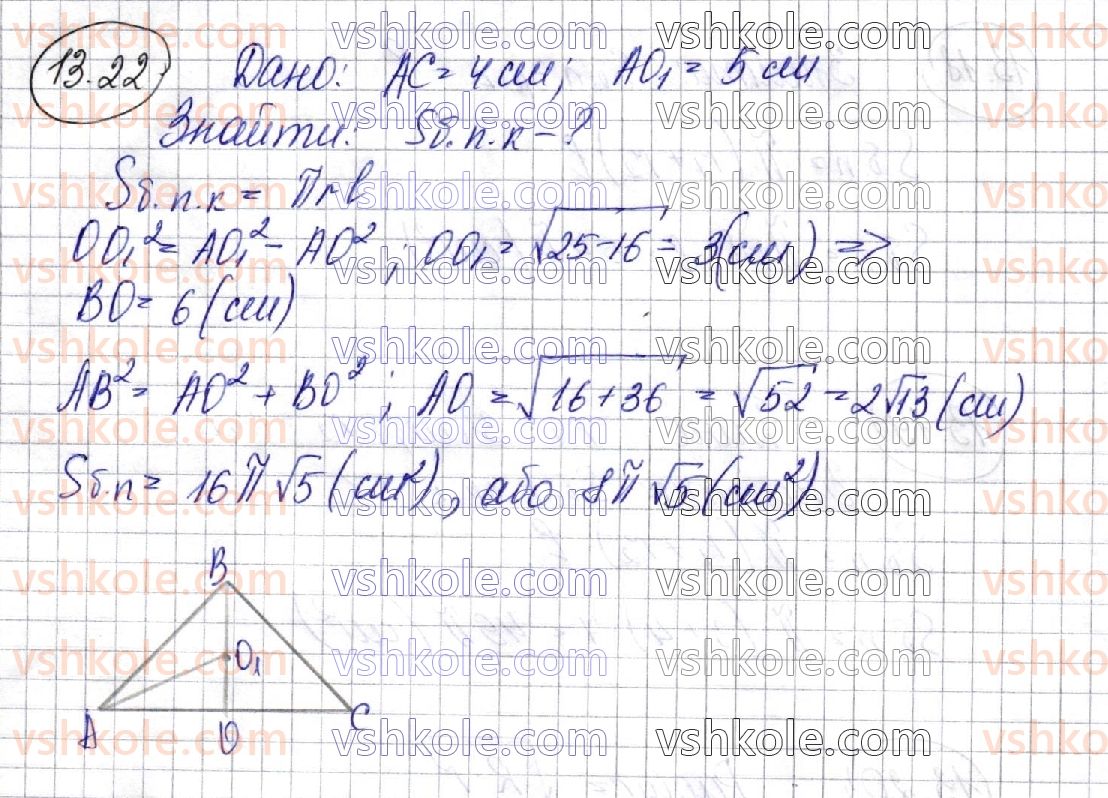 13.22 Дано: AC = 4 см; AO₁ = 5 см
Знайти: Sб.п.к - ?
Sб.п.к = πrl
OO₁² = AO₁² - AO²; OO₁ = √25-16 = 3(см) =>
BO = 6 (см)
AB² = AO² + BO²; AO = √16+36 = √52 = 2√13 (см)
Sб.п = 16π√5 (см²), або 8π√5 (см²)
B
O₁
A O C
vshkole.com